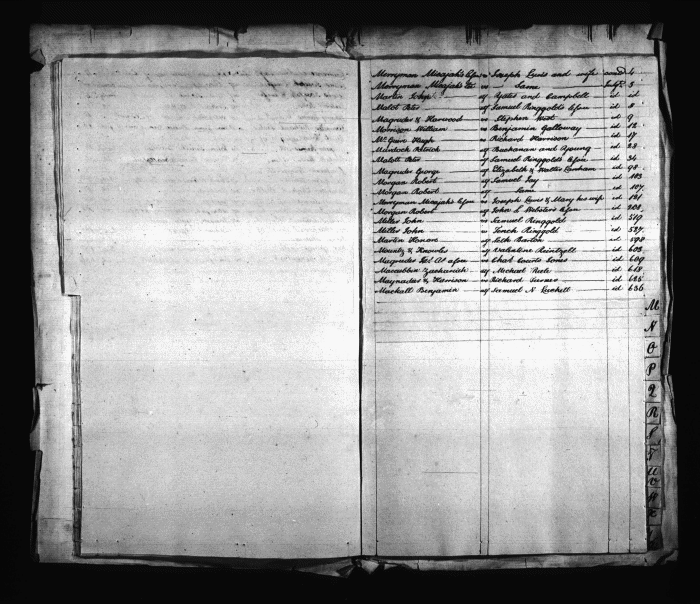 Merryman Micajah's Exon vs Joseph Lewis and wife 4
Merryman Micajah &c vs Same 3
Martin John Yates and Campbell id id
Malot Peter vs Samuel Ringgolds Exon id 8
Magruder & Harwood vs Stephen West id 9
Morrison William vs Benjamin Galloway id 12
Hugh vs Richard Harrison id 17
Murdock Patrick vs Buchanan and Young id 28
Malott Peter vs Samuel Ringgolds Exon id 34
Magruder George vs Elizabeth & Walter Lanham id 90
Morgan Robert vs Samuel Jay id 103
Morgan Robert vs Same id 107
Merryman Micajah Exon vs Joseph Lewis & Mary his wife id 191
Morgan Robert vs John L Websters Exon id 208
Miller John vs Samuel Ringgold id 519
Miller John vs Tench Ringgold id 527
Martin Honore vs Seth Barton id 598
Mountz & Knowles vs Valentine Reintzell id 603
Magruder vs Chas Coats Jones id 609
Maccubbin Zachariah vs Michael id 618
Maynadier & Harrison vs Richard Turner id 625
Mackall Benjamin vs Samuel N Luckett id 636
M
N
O
P
Q
R
S
T
U
V
W